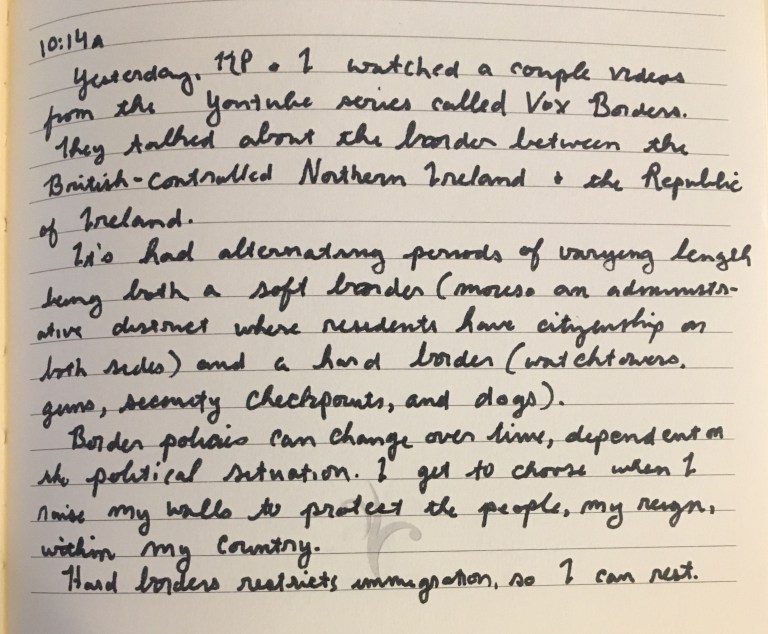 10:14A
Yesterday, KP & I watched a couple videos
from the Youtube series called Vox Borders.
They talked about the border between the
British-controlled Northern Ireland & the Republic
of Ireland.
It's had alternating periods of varying length
being both a soft border (moreso an administr-
ative district where residents have citizenship on
both sides) and a hard border (watchtowers,
guns, security checkpoints, and dogs).
Border policies can change over time, dependent on
the political situation. I get to choose when I
raise my walls to protect the people, my reign,
within my country.
Hard borders restricts immigration, so I can rest.